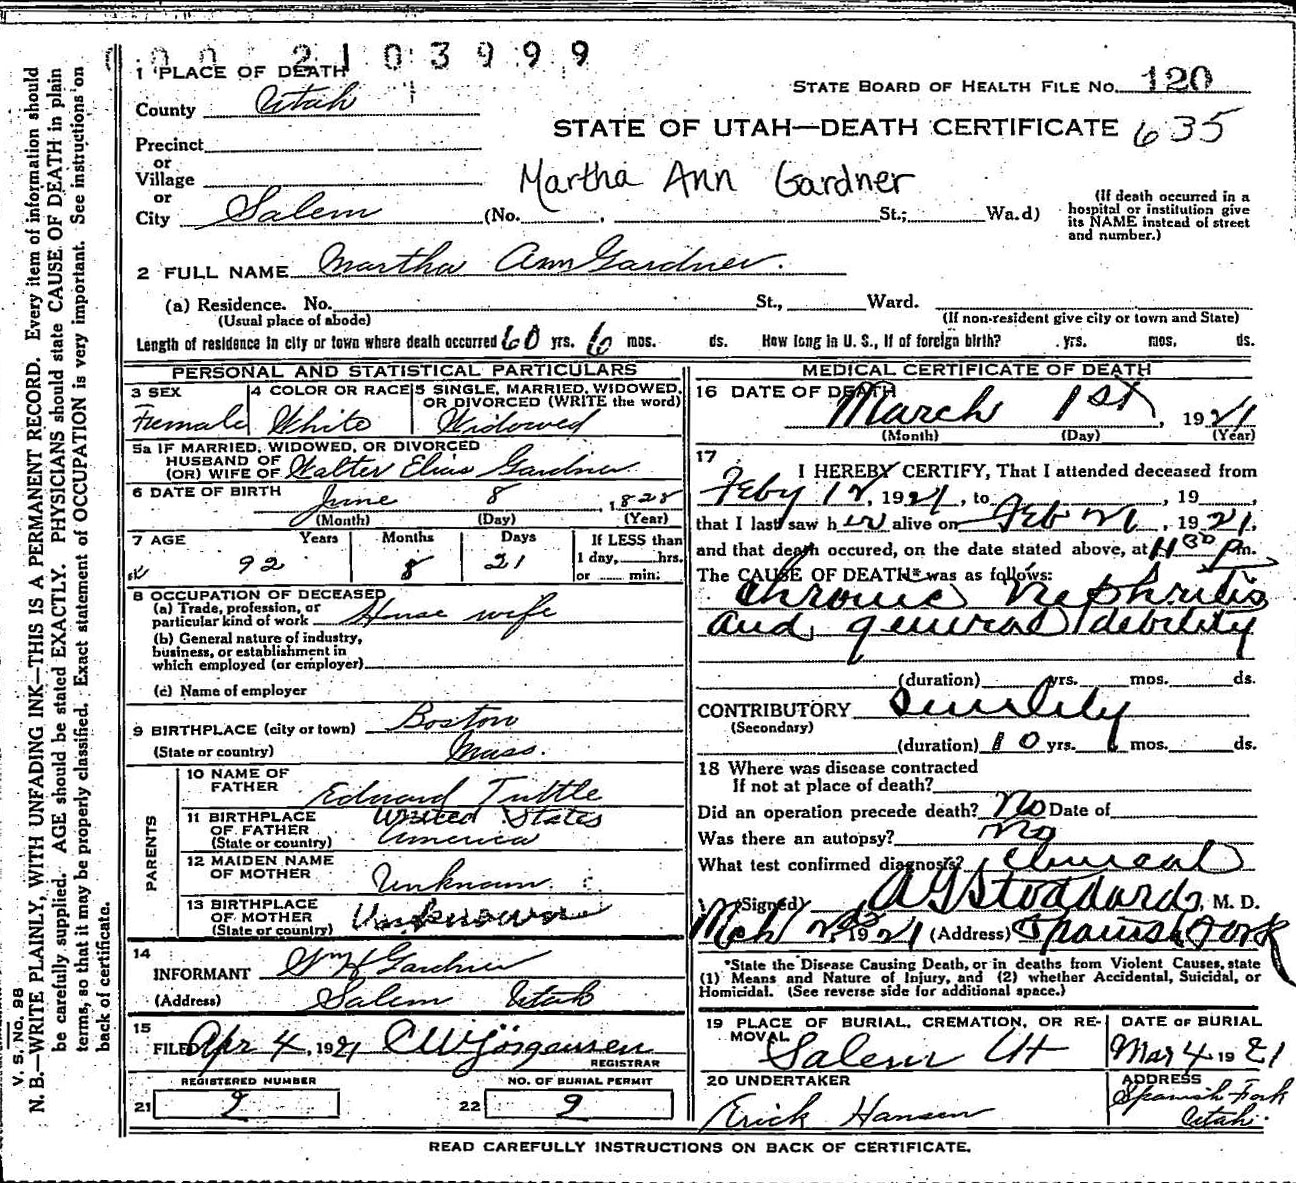 0 0 0 2 1 0 3 9 9 9
1 PLACE OF DEATH
County Utah
STATE BOARD OF HEALTH FILE No. 120
STATE OF UTAH—DEATH CERTIFICATE 635
Precinct
or
Village
Martha Ann Gardner
or
City Salem (No. , St.; Wa.d)
(If death occurred in a
hospital or institution give
its NAME instead of street
and number.)
2 FULL NAME Martha Ann Gardner.
(a) Residence. No. St., Ward.
(Usual place of abode) (If non-resident give city or town and State)
Length of residence in city or town where death occurred 60 yrs. 6 mos. ds. How long in U. S., if of foreign birth? yrs. mos. ds.
PERSONAL AND STATISTICAL PARTICULARS
3 SEX
Female
4 COLOR OR RACE
White
5 SINGLE, MARRIED, WIDOWED,
OR DIVORCED (WRITE the word)
Widowed
5a IF MARRIED, WIDOWED, OR DIVORCED
HUSBAND OF
(OR) WIFE OF Walter Elias Gardner
6 DATE OF BIRTH June 8, 1828
(Month) (Day) (Year)
7 AGE Years Months Days If LESS than
92 8 21 1 day, hrs.
or min:
8 OCCUPATION OF DECEASED
(a) Trade, profession, or
particular kind of work House wife
(b) General nature of industry,
business, or establishment in
which employed (or employer)
(c) Name of employer
9 BIRTHPLACE (city or town) Boston
(State or country) Mass.
PARENTS
10 NAME OF
FATHER Edward Tuttle
11 BIRTHPLACE United States
OF FATHER
(State or country) America
12 MAIDEN NAME
OF MOTHER Unknown
13 BIRTHPLACE
OF MOTHER Unknown
(State or country)
14
INFORMANT Wm H Gardner
(Address) Salem Utah
15
FILED Apr 4, 1921 C W Jörgensen
REGISTRAR
REGISTERED NUMBER NO. OF BURIAL PERMIT
21 9 22 9
MEDICAL CERTIFICATE OF DEATH
16 DATE OF DEATH
March 1st, 1921
(Month) (Day) (Year)
17
I HEREBY CERTIFY, That I attended deceased from
Feby 12, 1921, to , 19 ,
that I last saw her alive on Feb 21, 1921,
and that death occured, on the date stated above, at 11 30 pm.
The CAUSE OF DEATH* was as follows:
Chronic Nephritis
and general debility
(duration) yrs. mos. ds.
CONTRIBUTORY Senility
(Secondary)
(duration) 10 yrs. mos. ds.
18 Where was disease contracted
If not at place of death?
Did an operation precede death? No Date of
Was there an autopsy? No
What test confirmed diagnosis? Clinical
(Signed) A G Stoddard, M. D.
Mch 1921 (Address) Spanish Fork
*State the Disease Causing Death, or in deaths from Violent Causes, state
(1) Means and Nature of Injury, and (2) whether Accidental, Suicidal, or
Homicidal. (See reverse side for additional space.)
19 PLACE OF BURIAL, CREMATION, OR RE-
MOVAL
Salem Ut
DATE OF BURIAL
Mar 4 1921
20 UNDERTAKER
Erick Hansen
ADDRESS
Spanish Fork
Utah.
READ CAREFULLY INSTRUCTIONS ON BACK OF CERTIFICATE.
V. S. No. 98
N. B.—WRITE PLAINLY, WITH UNFADING INK—THIS IS A PERMANENT RECORD. Every item of information should
be carefully supplied. AGE should be stated EXACTLY. PHYSICIANS should state CAUSE OF DEATH in plain
terms, so that it may be properly classified. Exact statement of OCCUPATION is very important. See instructions on
back of certificate.